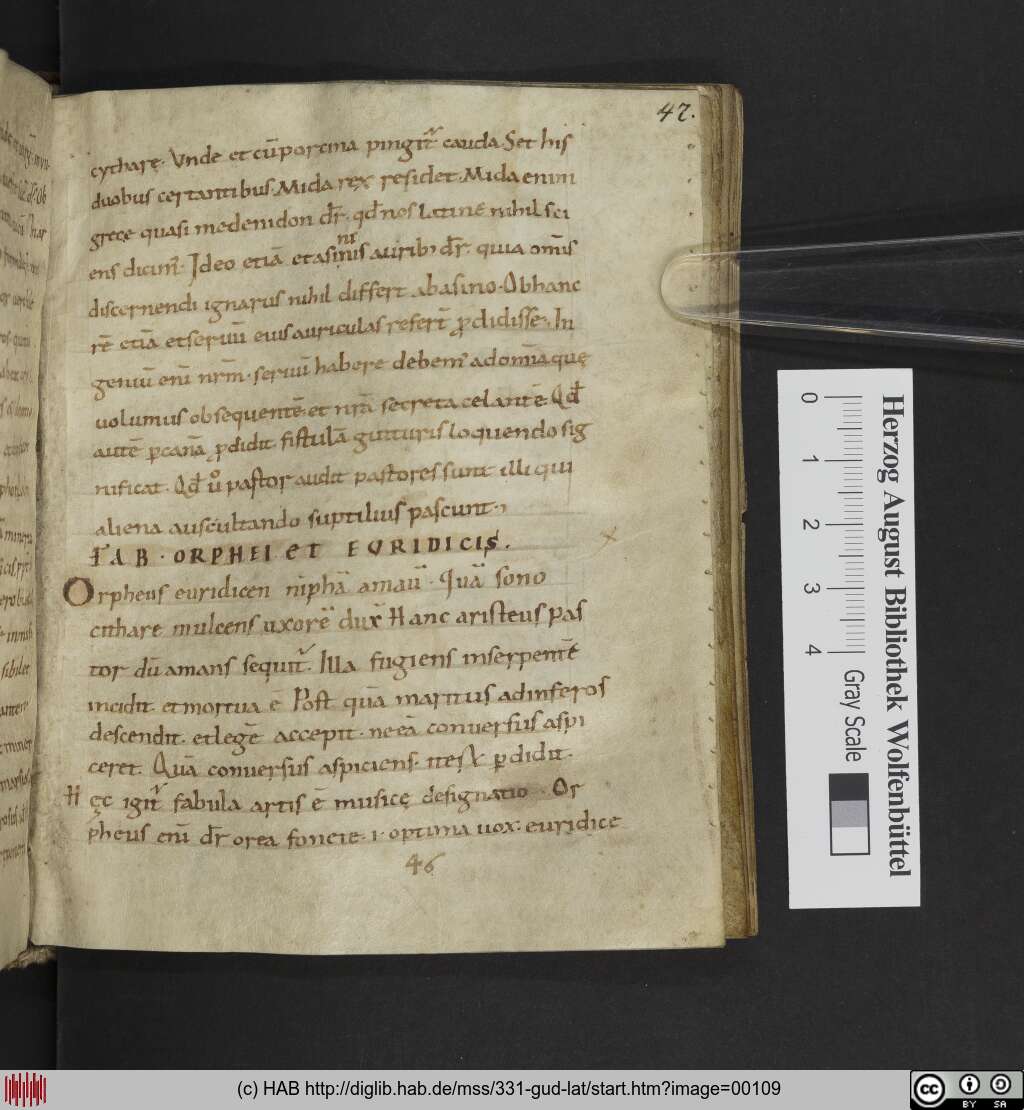 47.
cytharę. Vnde et cū porcina pingit᷑ cauda. Set his
duobus certantibus. Mida rex residet. Mida enim
grece quasi medenidon dr̄. qđ nos Latine nihil sci
ens dicim᷒. Ideo etiā et asininis aurib᷒ dr̄. quia om̄is
discernendi ignarus nihil differt ab asino. Ob hanc
rē etiā et seruū eius auriculas refert ꝓdidisse. In
geniū enī nr̄m. seruū habere debem᷒ ad om̄ia quę
uolumus obsequentē. et nr̄a secreta celantē. Qđ
autē ꝑ cannā ꝓdidit fistulā gutturis loquendo sig
nificat. Qđ ů pastor audit pastores sunt illi qui
aliena auscultando suptilius pascunt.
FAB. ORPHEI et EVRIDICIS.
Orpheus euridicen niphā amauī. Quā sono
cithare mulcens uxorē dux̄. Hanc aristeus pas
tor dū amans sequit᷑. Illa fugiens in serpentē
incidit. et mortua ē. Post quā maritus ad inferos
descendit. et legē accepit. ne eā conuersus aspi
ceret. Quā conuersus aspiciens. ꝑdidit.
Hęc igit᷑ fabula artis ē musicę designatio. Or
pheus enī dr̄ orea foncie. i. optima uox. euridice
46
Herzog August Bibliothek Wolfenbüttel
0 1 2 3 4
Gray Scale
(c) HAB http://diglib.hab.de/mss/331-gud-lat/start.htm?image=00109
cc BY SA